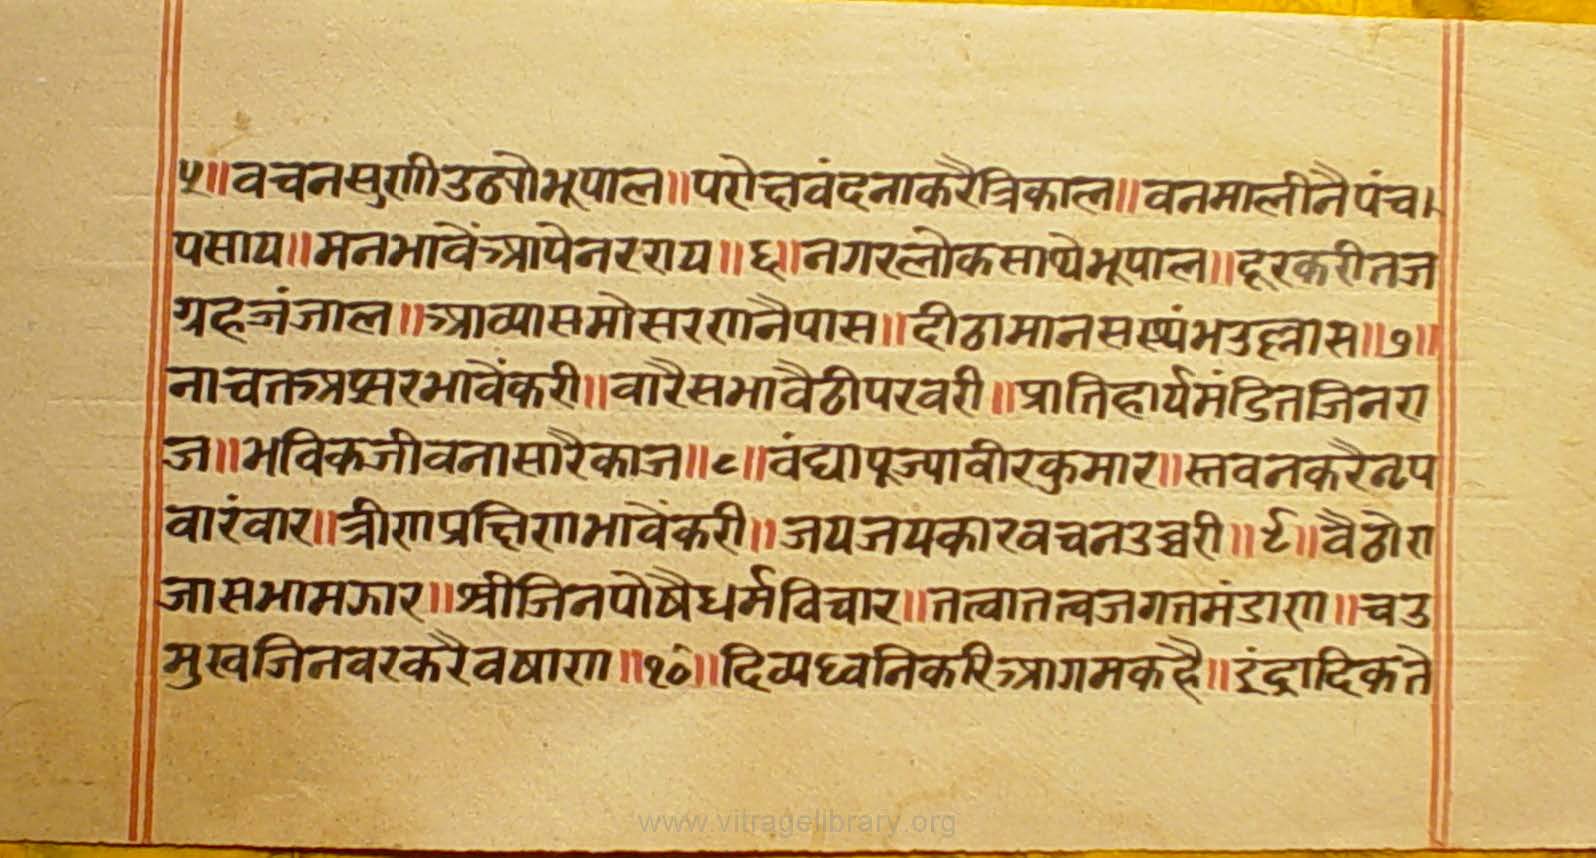 ५॥वचनसुणीउठ्योभूपाल॥परोक्षवंदनाकरैत्रिकाल॥वनमालीनैपंच।
पसाय॥मनभावेंआपेनरराय॥६॥नगरलोकसाथेभूपाल॥दूरकरीतज
ग्रहजंजाल॥आव्यासमोसरणनैपास॥दीठामानसस्थंभउल्लास॥७॥
नाचतअप्सरभावेंकरी॥वारैसभावैठीपरवरी॥प्रातिहार्यमंडितजिनरा
ज॥भविकजीवनासारैकाज॥८॥वंद्यापूज्यावीरकुमार॥स्तवनकरैनृप
वारंवार॥त्रीणप्रत्तिणाभावेंकरी॥जयजयकारवचनउच्चरी॥९॥वैठोरा
जासभामझार॥श्रीजिनपोषैधर्मविचार॥तत्वातत्वजगतमंडाण॥चउ
मुखजिनवरकरैवषाण॥१०॥दिव्यध्वनिकरिआगमकहै॥इंद्रादिकते
www.vitragelibrary.org